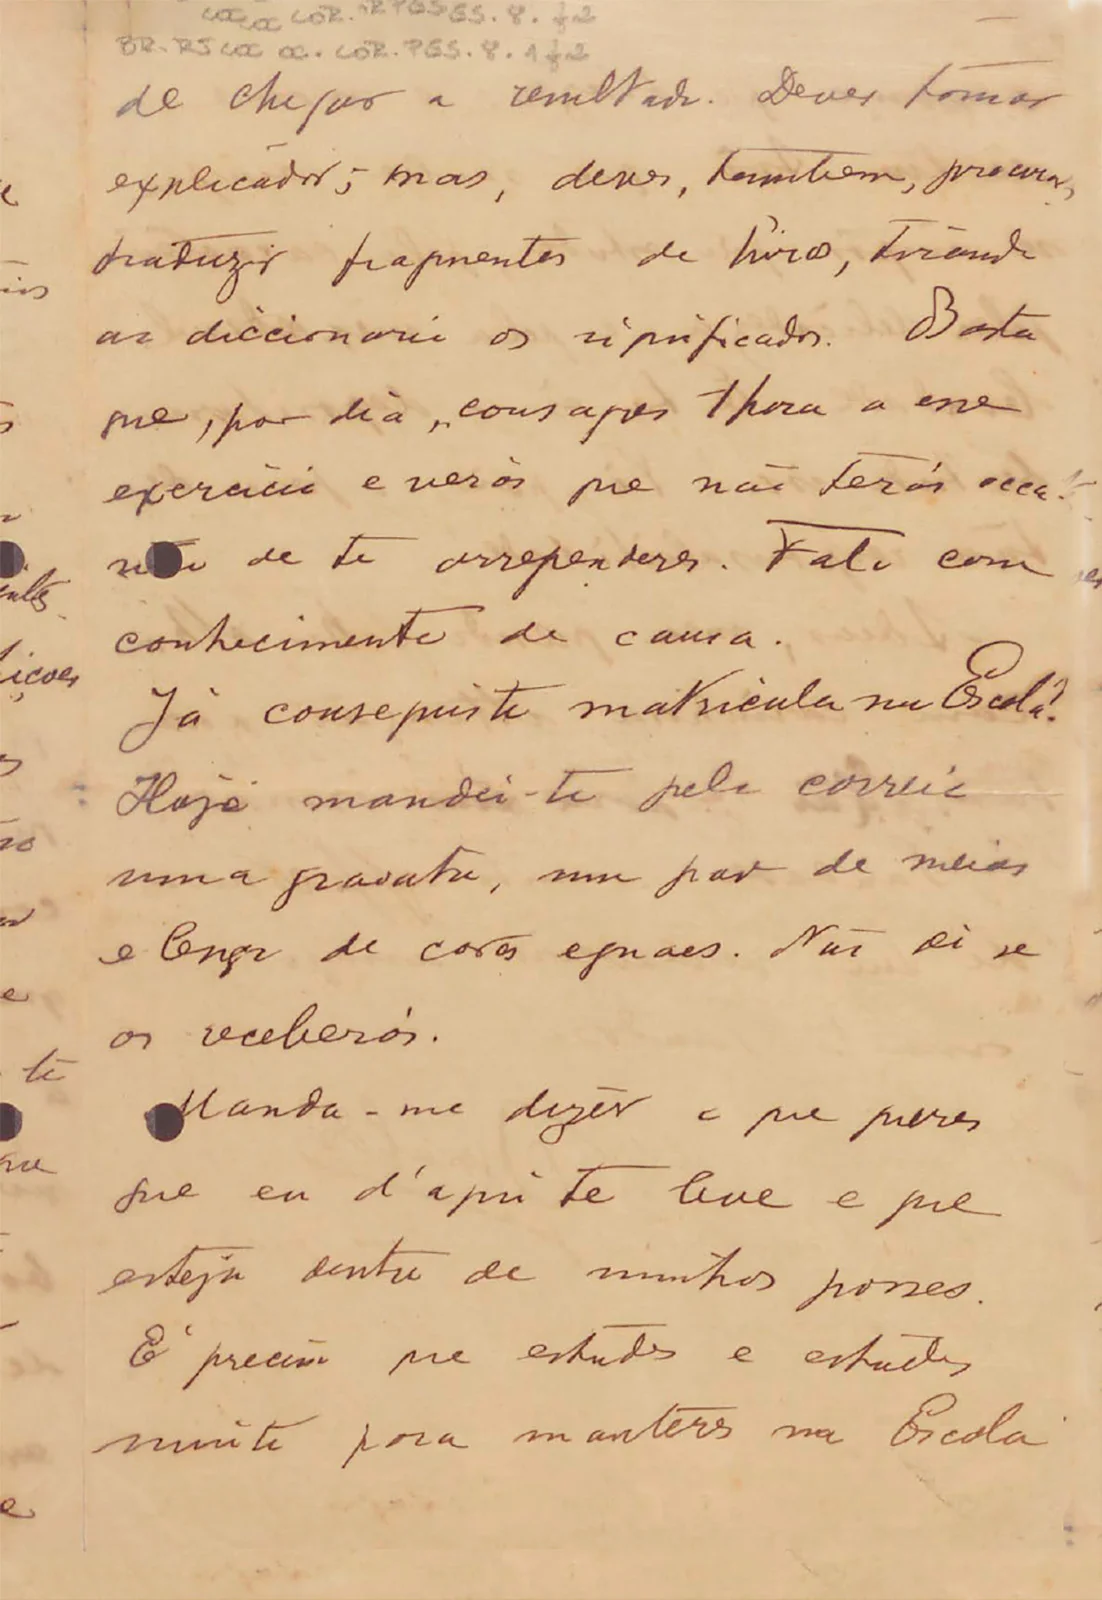 BR.RJ COC OC. COR. PES. 8. 1 f. 2
de chegar a resultado. Deves tomar
explicador; mas, deves, tambem, procurar
traduzir fragmentos de livros, tirando
ao diccionario os significados. Basta
que, por dia, consagres 1 hora a esse
exercicio e verás que não terás occa-
sião de te arrependeres. Falo com
conhecimento de causa.
Já conseguiste matricula na Escola?
Hoje mandei-te pelo correio
uma gravata, um par de meias
e lenço de cores eguaes. Não sei se
os receberás.
Manda-me dizer o que queres
que eu d'aqui te leve e que
esteja dentro de minhas posses.
É preciso que estudes e estudes
muito para manteres na Escola